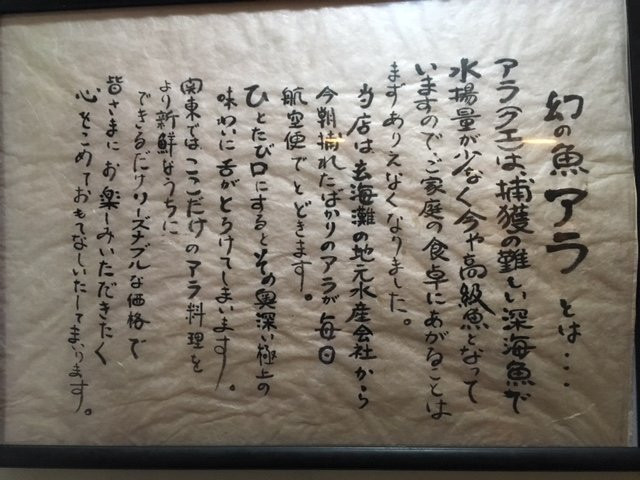 幻の魚アラとは・・・
アラ(クエ)は、捕獲の難しい深海魚で
水揚量が少なく今や高級魚となって
いますのでご家庭の食卓にあがることは
まずありえなくなりました。
当店は玄海灘の地元水産会社から
今朝捕れたばかりのアラが毎日
航空便でとどきます。
ひとたび口にするとその奥深い極上の
味わいに舌がとろけてしまいます。
関東では、ここだけのアラ料理を
より新鮮なうちに
できるだけリーズナブルな価格で
皆さまにお楽しみいただきたく
心をこめておもてなしいたしてまいります。